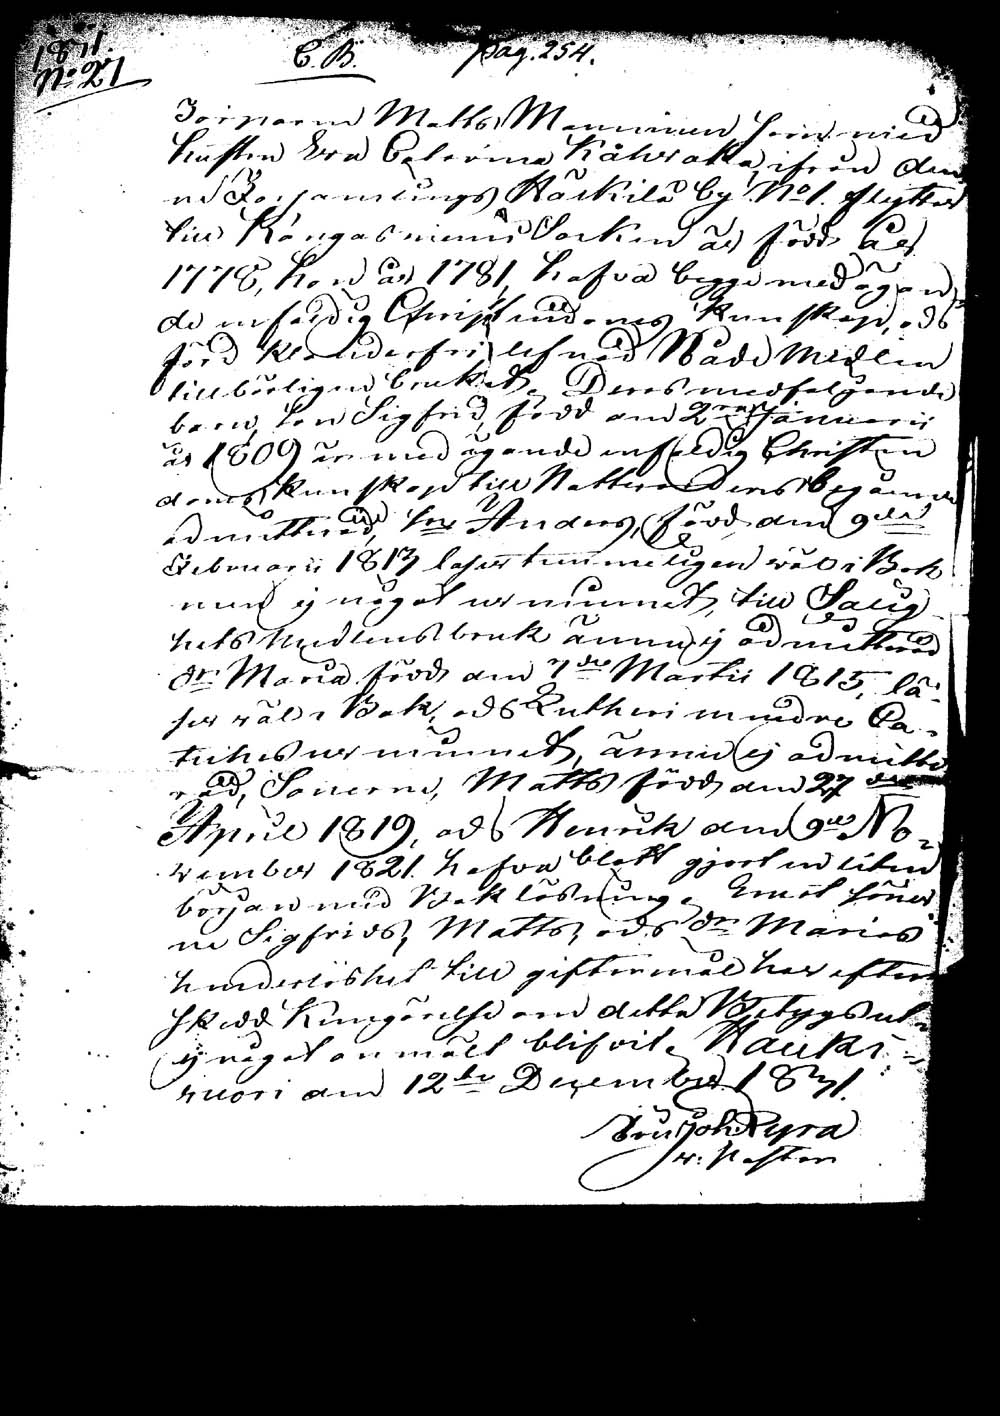 1831.
No 21
C. B. pag. 254.
Torparen Matts Manninen som med
hustru Eva Catarina Kåhvakka, ifrån den
na Församlings Häckilä by No 1. flyttar
till Kangasniemi Socken är född år
1778, hon år 1781, hafva begge medägan
de enfaldig Christendoms kunskap, ock
förd klanderfri lefnad Nåde Medlen
tillbörligen brukat. Deras medföljande
barn, son Sigfrid, född den 2 Januarii
år 1809 är med ägande enfaldig Christen
doms kunskap till Nattvardens begående
admitterad, son Anders, född den 9de
Februarii 1813 läser temmeligen väl i Bok
men ej något ur minnet, till Salig
hets medlens bruk ännu ej admitterad
dr Maria född den 7de Martii 1815, lä-
ser väl i Bok, och Lutheri mindre Ca-
teches ur minnet, ännu ej admitte
rad, Sönerne, Matts född den 27de
April 1819, och Henrik den 9de No-
vember 1821. hafva blott gjort en liten
början med Bok läsning. Emot söner
ne Sigfrids, Matts, och dr Marias
hinderlöshet till giftermål har efter
skedd Kungörelse om detta Betygs ut-
ej något anmält blifvit. Hauki-
vuori den 12te December 1831.
Joh. Pyra
v. Pastor